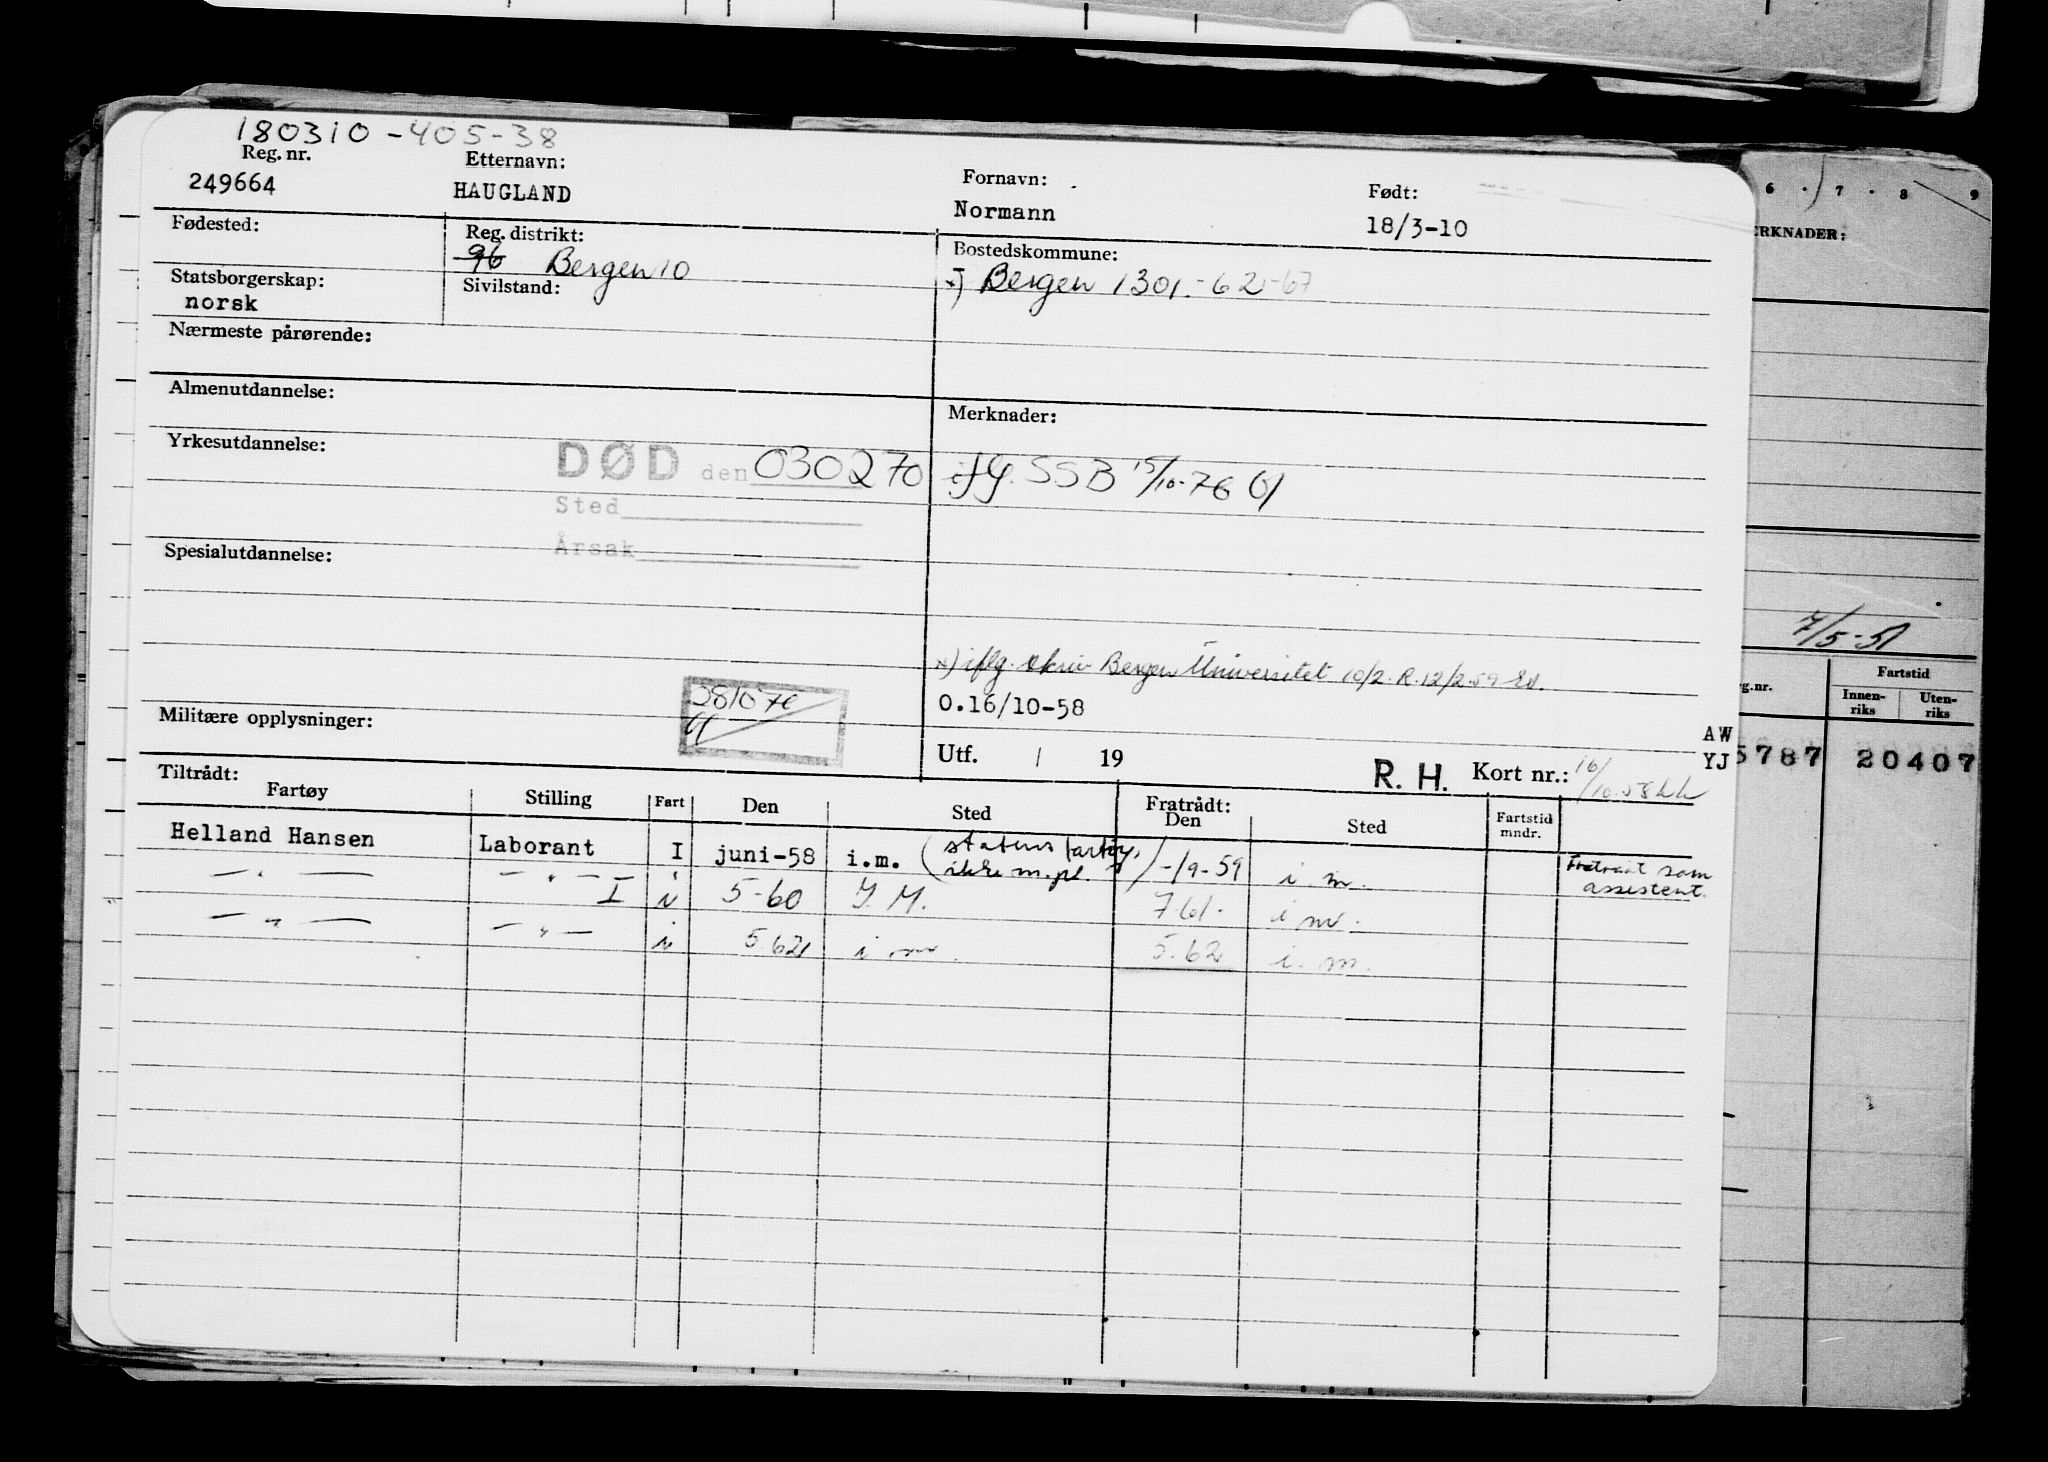 180310-405-38
Reg. nr. Etternavn: Fornavn: Født:
249664 HAUGLAND Normann 18/3-10
Fødested: Reg. distrikt: Bostedskommune:
96 Bergen 10 x) Bergen 1301.-62-67
Statsborgerskap: Sivilstand:
norsk
Nærmeste pårørende:
Almenutdannelse: Merknader:
Yrkesutdannelse:
DØD den 030270 ifg. SSB 15/10-76
Sted
Årsak
Spesialutdannelse:
x) iflg. skriv Bergen Universitet 10/2. R. 12/2.59
281076
0.16/10-58
Militære opplysninger:
Utf. / 19 R. H. Kort nr.: 16/10.58
AW
YJ
Tiltrådt: Fratrådt:
Fartøy Stilling Fart Den Sted Den Sted Fartstid mndr.
Helland Hansen Laborant I juni-58 i.m. (statens fartøy, ikke m.pl.) -/9-59 i. m. Fratrådt som assistent.
— " — — " — I i 5-60 I. M. 761. i m.
— " — — " — i 5.62 i m. 5.62 i. m.
6 . 7 . 8 9
ERKNADER:
7/5-51
g.nr. Fartstid
Innen-riks Uten-riks
5787 20407